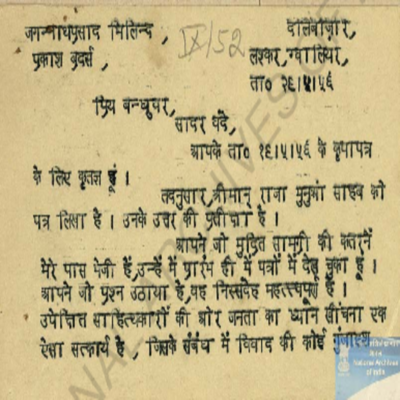 जगन्नाथप्रसाद मिलिन्द, IX/52 दालबाज़ार,
प्रकाश ब्रदर्स, लश्कर, ग्वालियर,
ता० २९।५।५६
प्रिय बन्धुवर,
सादर वंदे,
आपके ता० १९।५।५६ के कृपापत्र
के लिए कृतज्ञ हूं ।
तदनुसार, श्रीमान् राजा मुनुआं साहब को
पत्र लिखा है । उनके उत्तर की प्रतीक्षा है ।
आपने जो मुद्रित सामग्री की कतरनें
मेरे पास भेजी हैं, उन्हें में प्रारंभ ही में पत्रों में देख चुका हूं ।
आपने जो प्रश्न उठाया है, वह निस्संदेह महत्त्वपूर्ण है ।
उपेक्षित साहित्यकारों की ओर जनता का ध्यान खींचना एक
ऐसा सत्कार्य है , जिसके संबंध में विवाद की कोई गुंजाइश
National Archives
of India